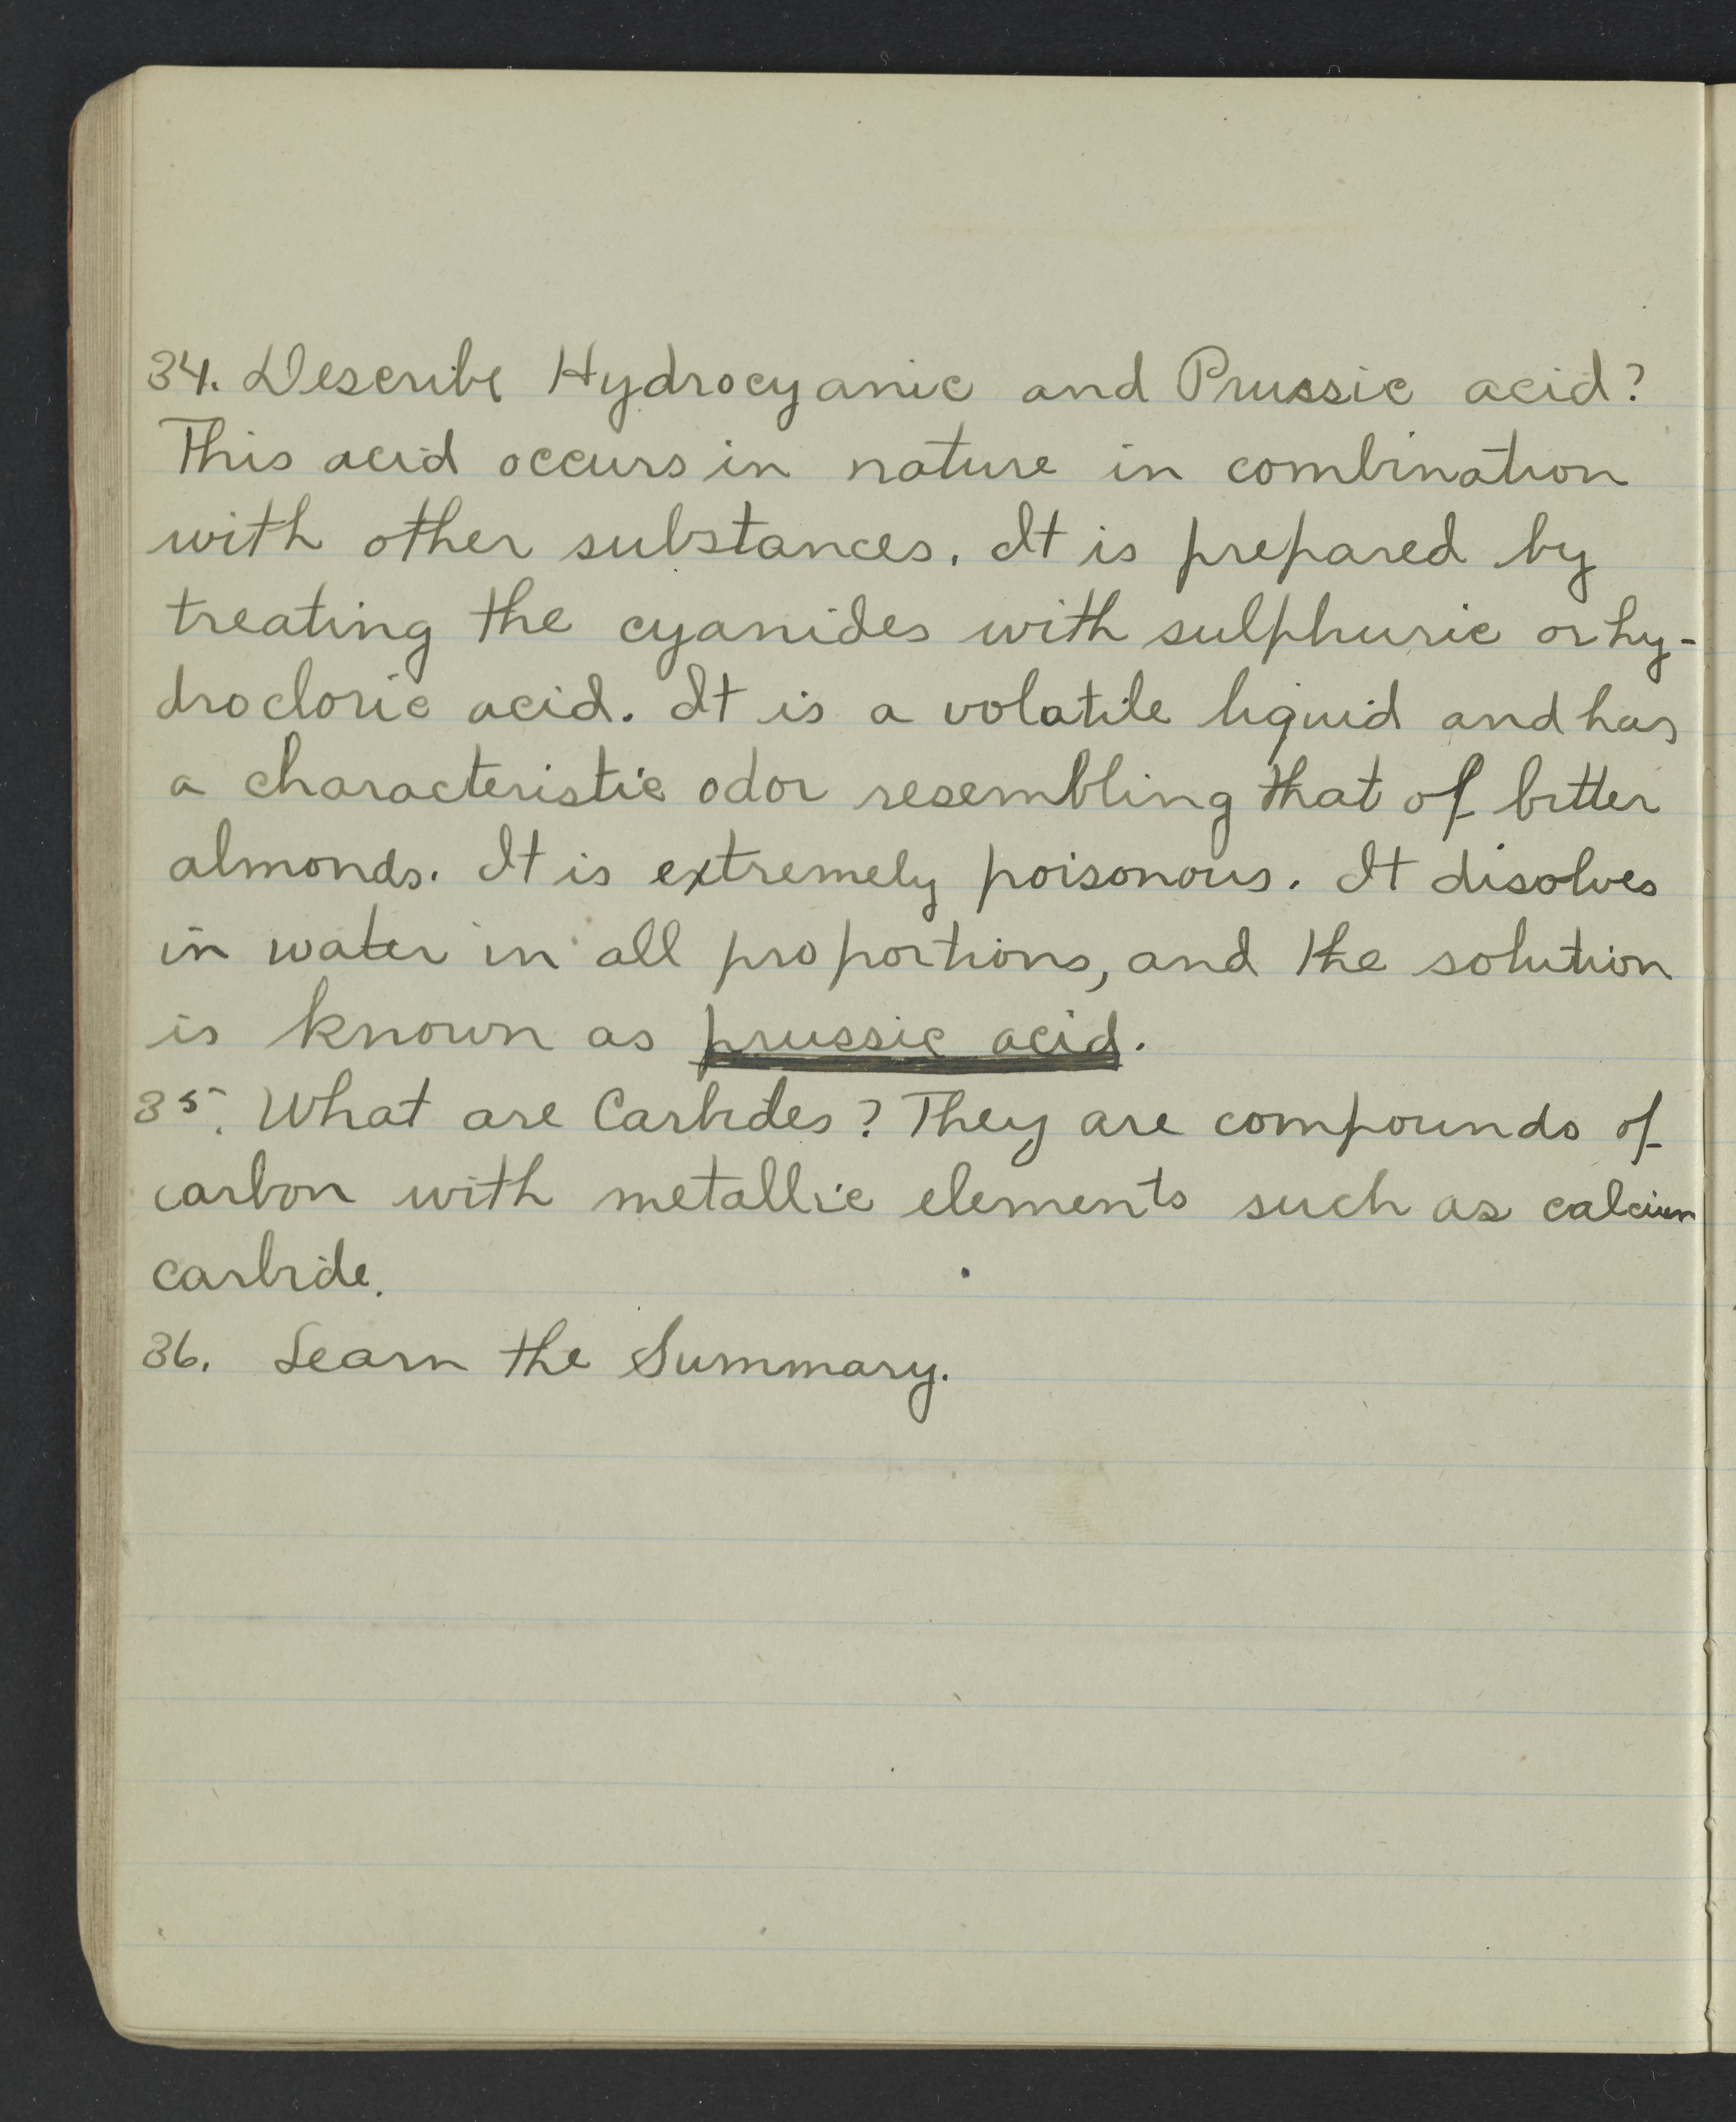 34. Describe Hydrocyanic and Prussic acid?
This acid occurs in nature in combination
with other substances. It is prepared by
treating the cyanides with sulphuric or hy-
drocloric acid. It is a volatile liquid and has
a characteristic odor resembling that of bitter
almonds. It is extremely poisonous. It disolves
in water in all proportions, and the solution
is known as prussic acid.
35. What are Carbides? They are compounds of
carbon with metallic elements such as calcium
carbide.
36. Learn the Summary.